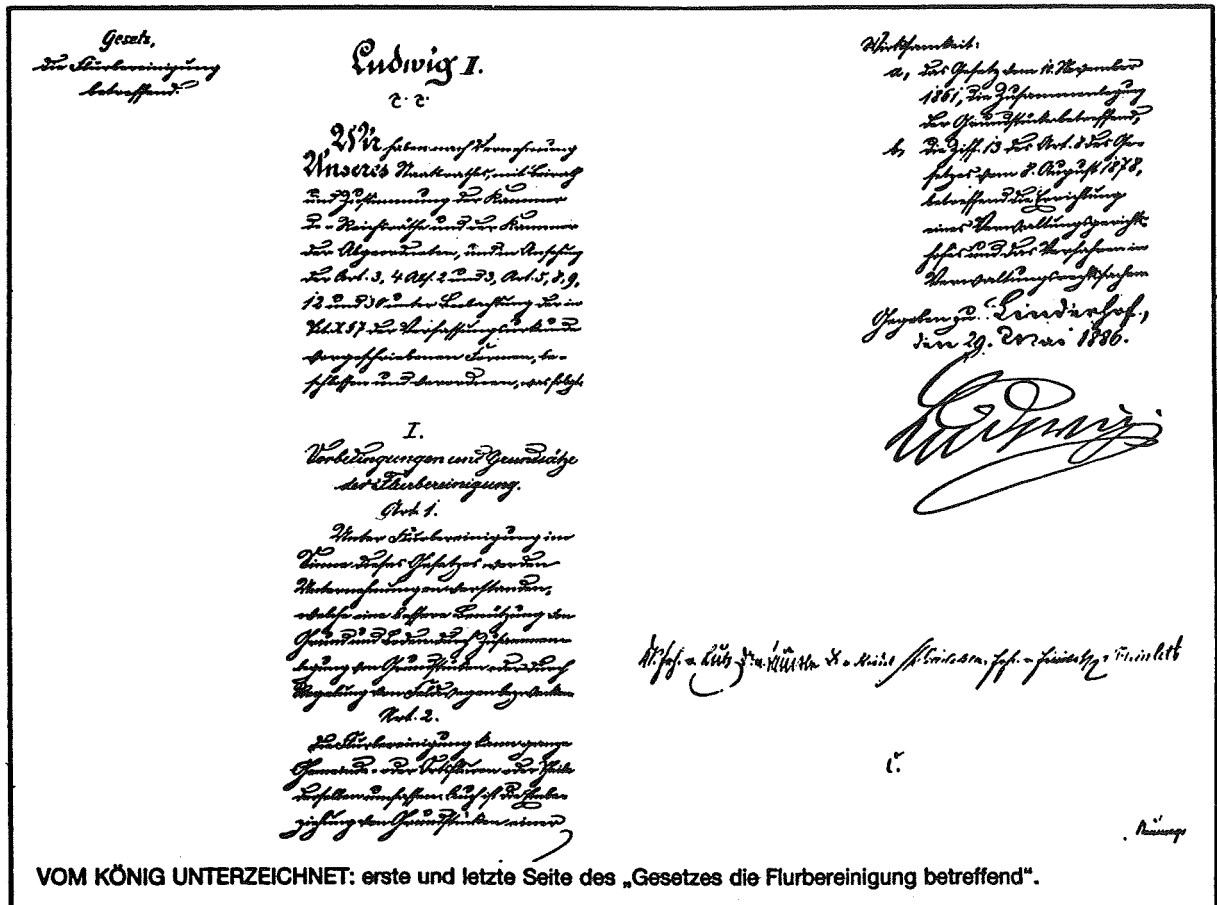 Gesetz,
die Flurbereinigung
betreffend.
Ludwig II.
r. r.
Wir haben nach Vernehmung
Unseres Staatsraths, mit Beirath
und Zustimmung der Kammer
der Reichsräthe und der Kammer
der Abgeordneten, und in Ansehung
der Art. 3, 4 Abs. 2 und 3, Art. 5, 8, 9,
12 und 30 unter Beobachtung der in
Tit. X § 7 der Verfassungsurkunde
vorgeschriebenen Formen, be-
schlossen und verordnen, was folgt:
I.
Vorbedingungen und Grundsätze
der Flurbereinigung.
Art. 1.
Unter Flurbereinigung im
Sinne dieses Gesetzes werden
Unternehmungen verstanden,
welche eine bessere Benützung von
Grund und Boden durch Zusammen-
legung von Grundstücken oder durch
Regelung von Feldwegen bezwecken.
Art. 2.
Die Flurbereinigung kann ganze
Gemeinde- oder Ortsfluren oder Theile
derselben umfassen. Auch ist die Einbe-
ziehung von Grundstücken einer
Wirksamkeit:
a, das Gesetz vom 10. November
1861, die Zusammenlegung
der Grundstücke betreffend,
b, die Ziff. 13 des Art. 8 des Ge-
setzes vom 8. August 1878,
betreffend die Errichtung
eines Verwaltungsgerichts-
hofes und das Verfahren in
Verwaltungsrechtssachen
Gegeben zu Linderhof,
den 29. Mai 1886.
Ludwig
Dr. Frh. v. Lutz
VOM KÖNIG UNTERZEICHNET: erste und letzte Seite des „Gesetzes die Flurbereinigung betreffend“.